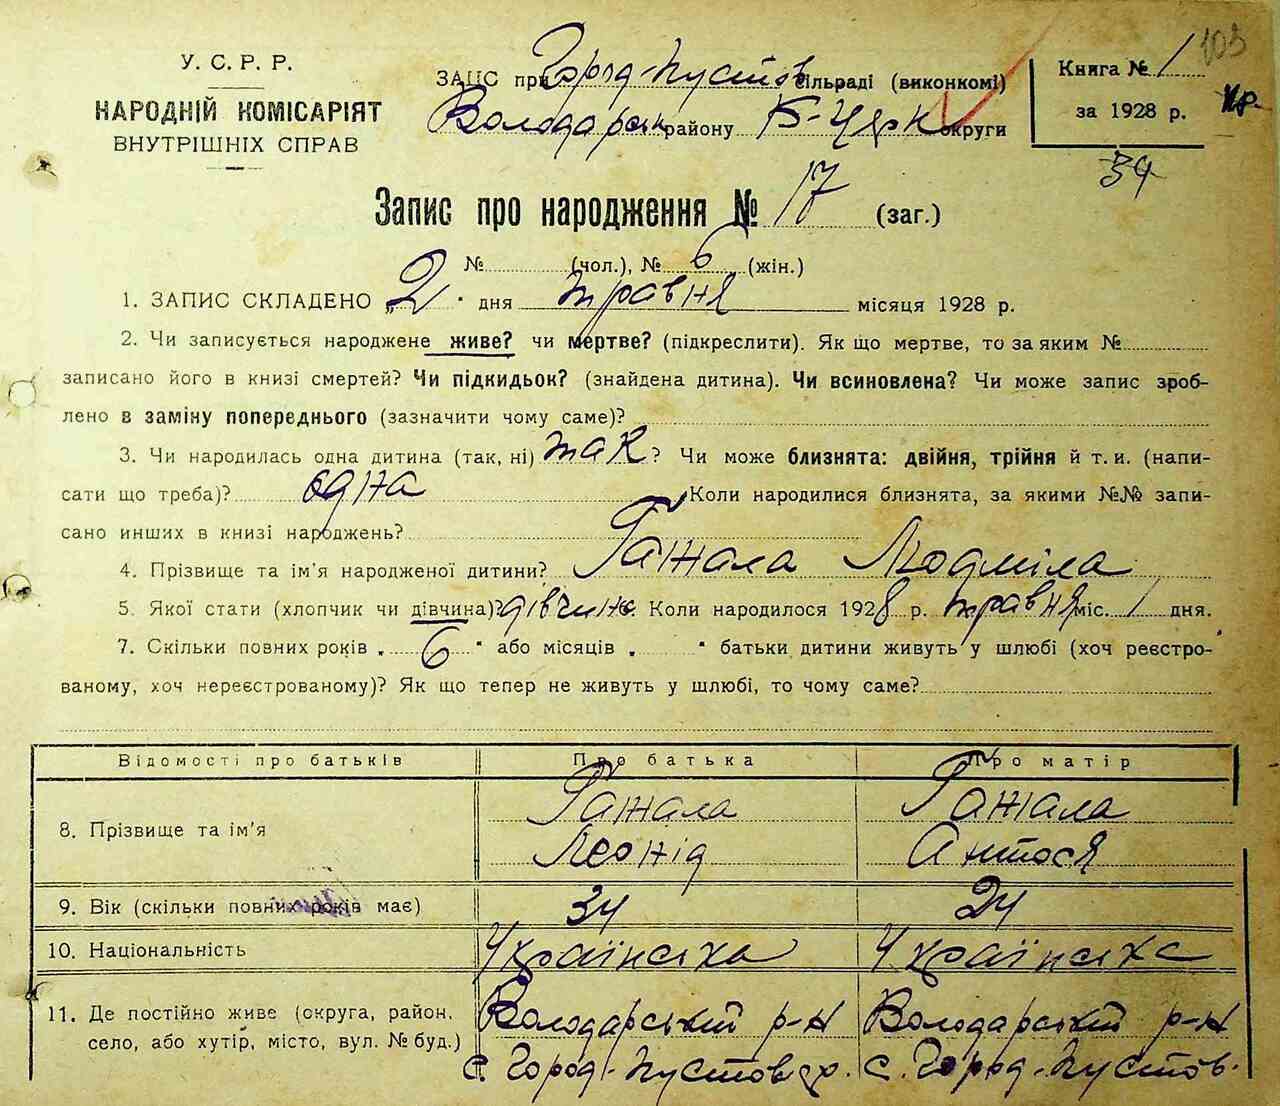 103
У. С. Р. Р.
НАРОДНІЙ КОМІСАРІЯТ
ВНУТРІШНІХ СПРАВ
ЗАЦС при Город-Пустов сільраді (виконкомі)
Володарськ району Б-Церк округи
Книга № 1
за 1928 р.
34
Запис про народження № 17 (заг.)
№ (чол.), № 6 (жін.)
1. ЗАПИС СКЛАДЕНО „2" дня травня місяця 1928 р.
2. Чи записується народжене живе? чи мертве? (підкреслити). Як що мертве, то за яким №
записано його в книзі смертей? Чи підкидьок? (знайдена дитина). Чи всиновлена? Чи може запис зроб-
лено в заміну попереднього (зазначити чому саме)?
3. Чи народилась одна дитина (так, ні) так? Чи може близнята: двійня, трійня й т. и. (напи-
сати що треба)? одна Коли народилися близнята, за якими №№ запи-
сано инших в книзі народжень?
4. Прізвище та ім'я народженої дитини? Гажала Людміла
5. Якої стати (хлопчик чи дівчина)? дівчина. Коли народилося 1928 р. травня міс. 1 дня.
7. Скільки повних років „6" або місяців „ " батьки дитини живуть у шлюбі (хоч реєстро-
ваному, хоч нереєстрованому)? Як що тепер не живуть у шлюбі, то чому саме?
Відомості про батьків Про батька Про матір
8. Прізвище та ім'я Гажала Леонід Гажала Антося
9. Вік (скільки повних років має) 34 24
10. Національність Українська Українська
11. Де постійно живе (округа, район, Володарський р-н Володарський р-н
село, або хутір, місто, вул. № буд.) с. Город-Пустовар. с. Город-Пустов.